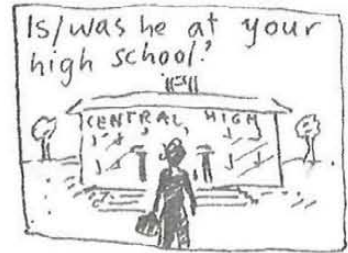 Is/was he at your
high school?
CENTRAL HIGH